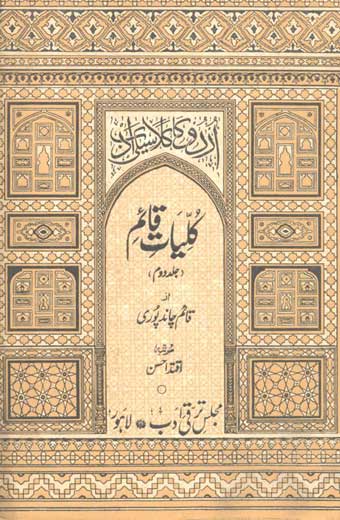 اُردو کا کلاسیکی ادب
کلیاتِ قائم
(جلد دوم)
از
قائم چاند پوری
مرتبہ
اقتدا حسن
مجلس ترقی ادب لاہور